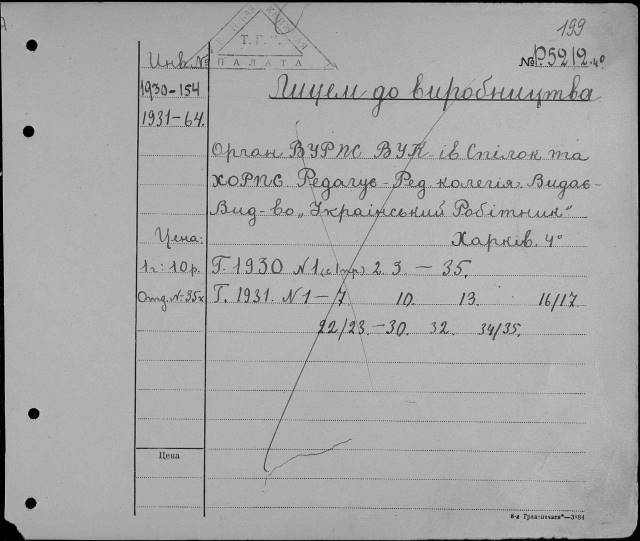 199
КНИЖНАЯ
Т. Г.
ПАЛАТА
№ P5212.4º
Инв. №
1930-154
1931-64.
Лицем до виробництва
Орган ВУРПС ВУК-ів Спілок та
ХОРПС Редагує-Ред. колегія. Видає-
Вид-во „Український Робітник"
Цена: Харків. 4º
1 г: 10 р. Г. 1930 N 1 (с 1 тр.) 2. 3. — 35.
Отд. № 35к Г. 1931. N 1 — 7 10. 13. 16/17
22/23. — 30. 32. 34/35.
Цена